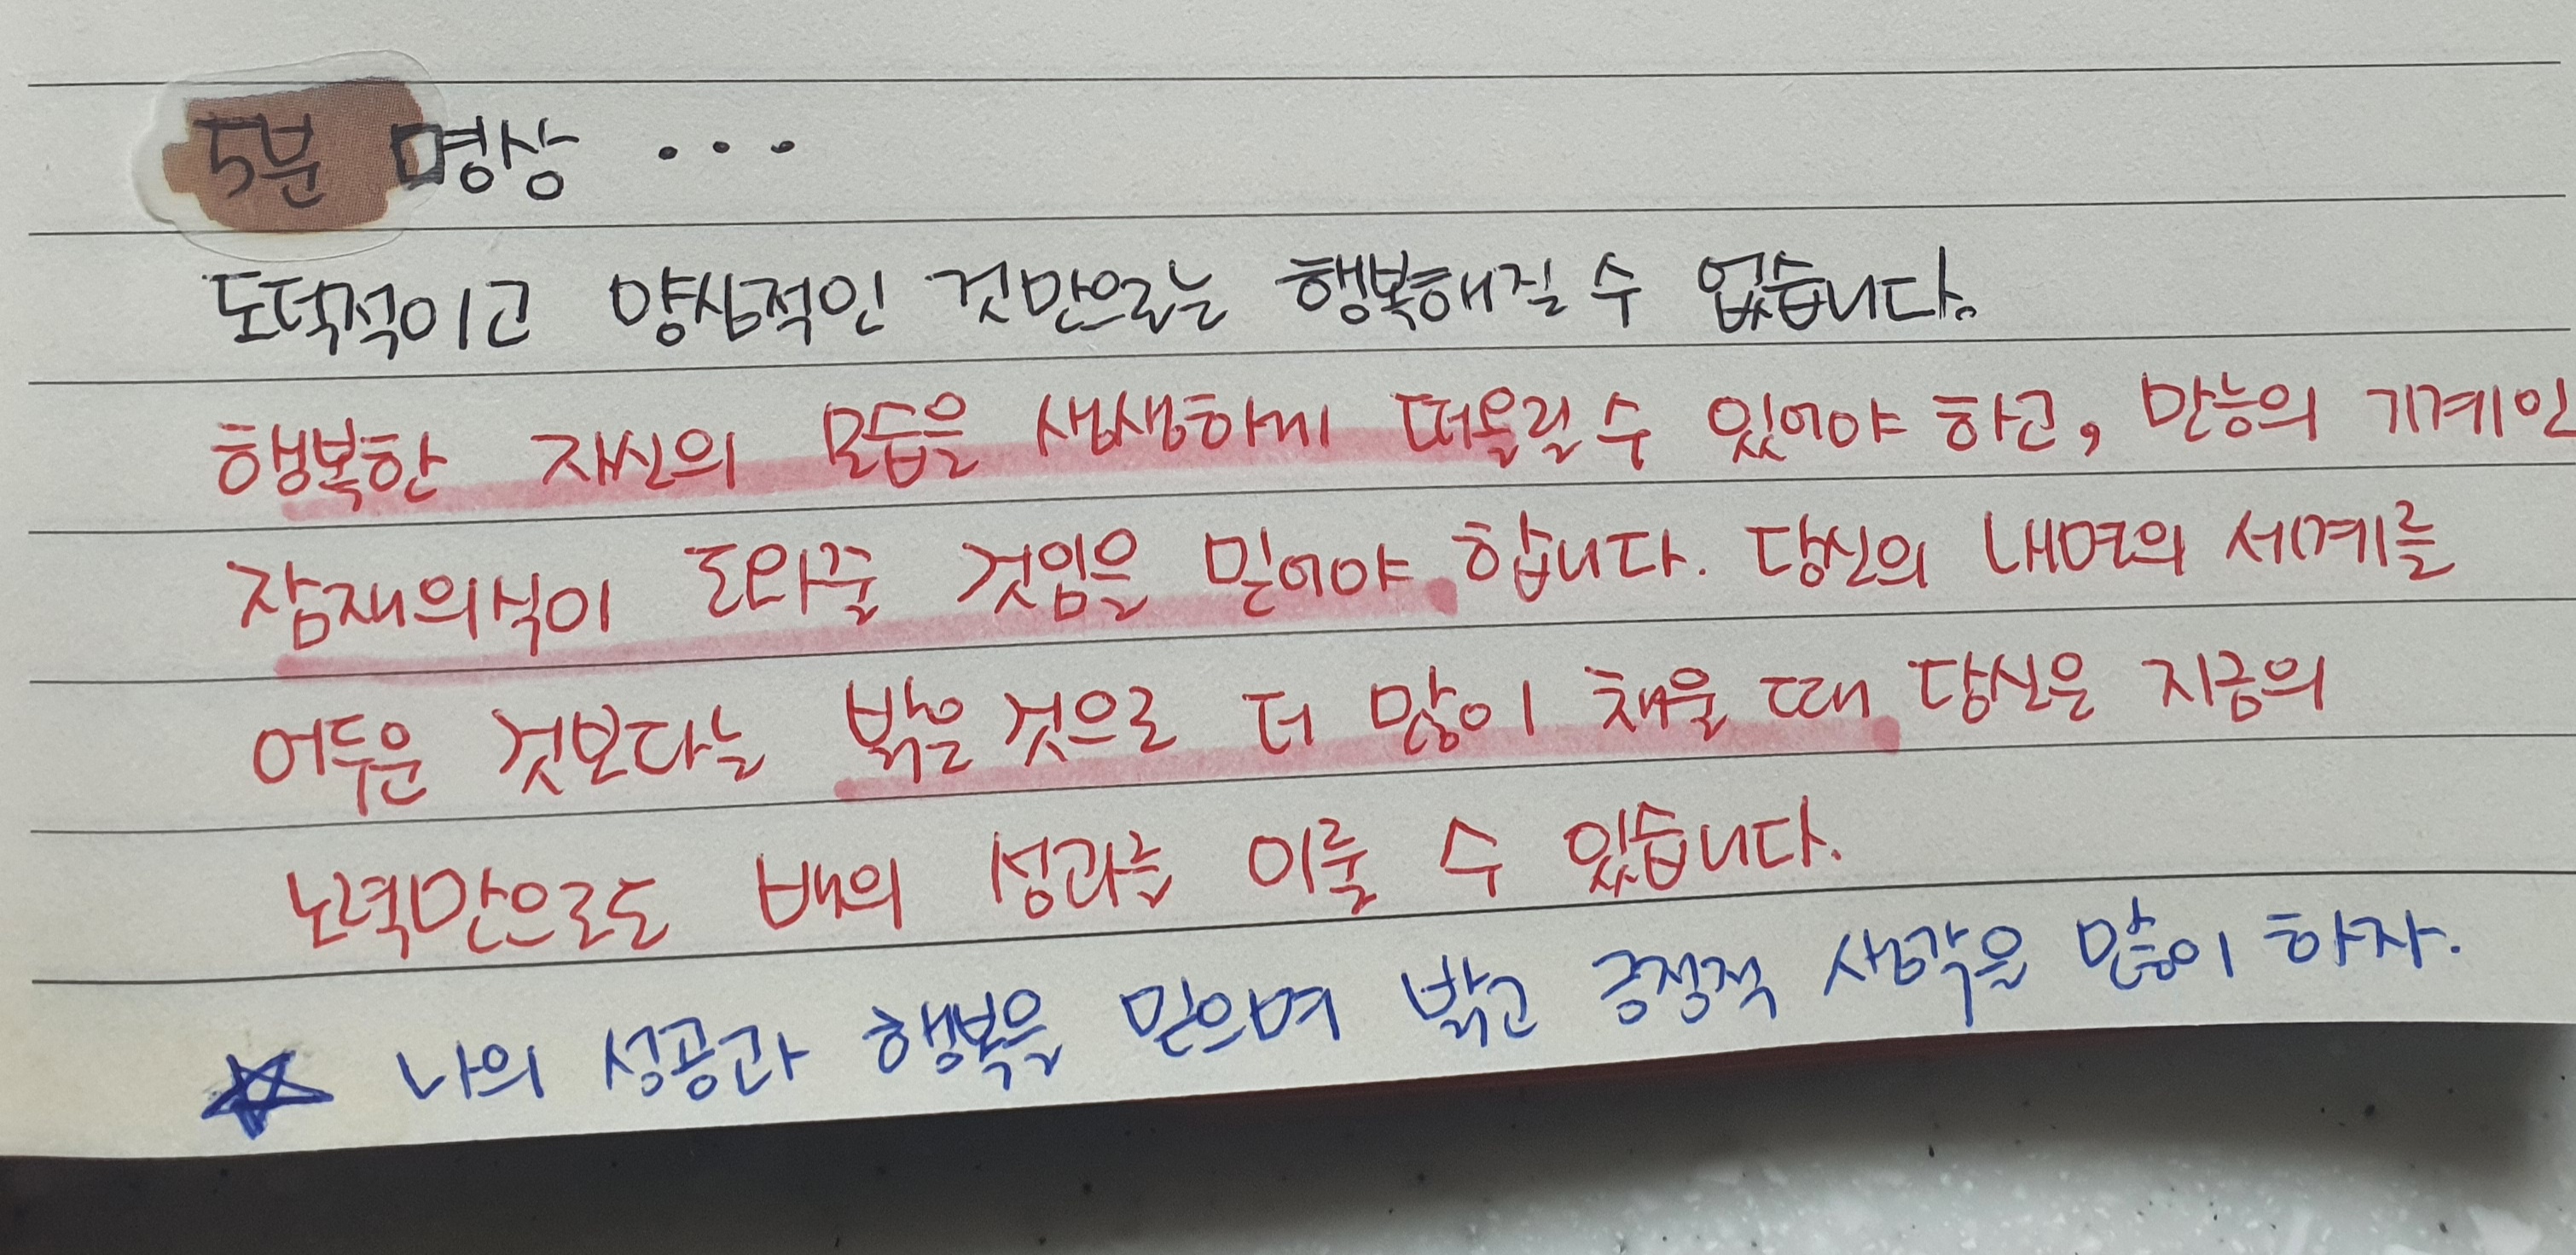 5분 명상 ...
도덕적이고 양심적인 것만으로는 행복해질 수 없습니다.
행복한 자신의 모습을 생생하게 떠올릴 수 있어야 하고, 만능의 기계인
잠재의식이 도와줄 것임을 믿어야 합니다. 당신의 내면의 세계를
어두운 것보다는 밝은 것으로 더 많이 채울 때 당신은 지금의
노력만으로도 배의 성과를 이룰 수 있습니다.
☆ 나의 성공과 행복을 믿으며 밝고 긍정적 생각을 많이 하자.